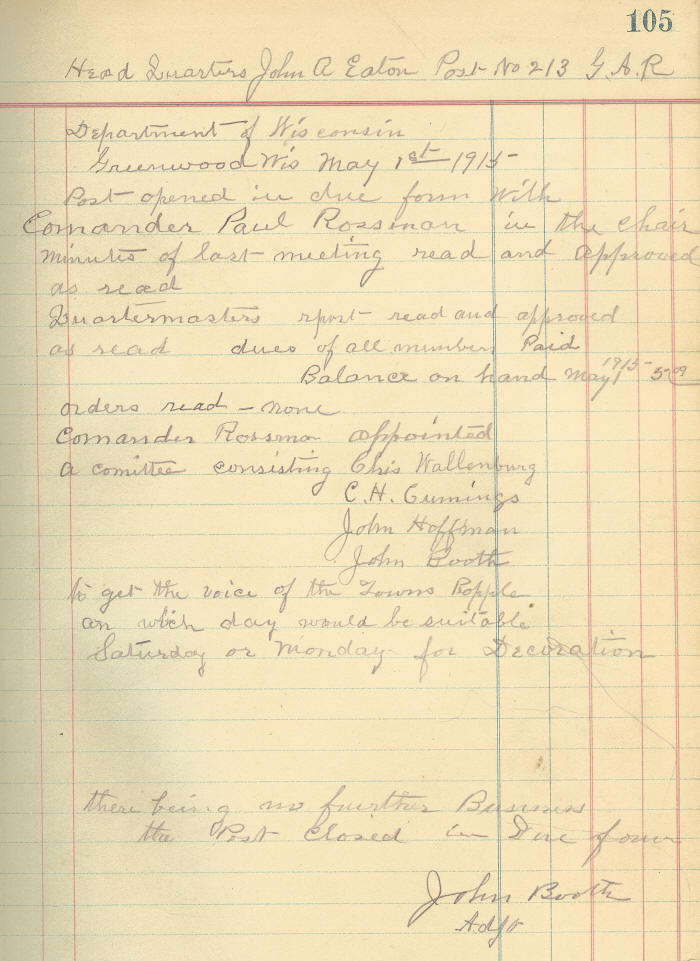 105
Head Quarters John A Eaton Post No 213 G.A.R
Department of Wisconsin
Greenwood Wis May 1st 1915
Post opened in due form with
Comander Paul Rossman in the chair
minutes of last meeting read and approved
as read
Quartermasters rport read and approved
as read dues of all members Paid
Balance on hand May 1 1915 5.09
orders read - none
Comander Rossman appointed
a comittee consisting Chis Wallenburg
C.H. Cumings
John Hoffman
John Booth
to get the voice of the Towns Popple
on which day would be suitable
Saturday or Monday for Decoration
there being no further Business
the Post Closed in Due form
John Booth
Adjt